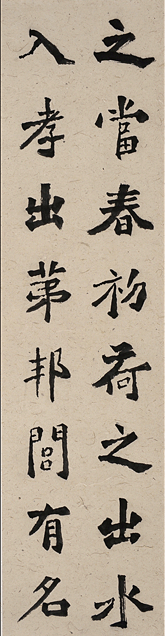 之當春初荷之出水
入孝出苐邦閭有名